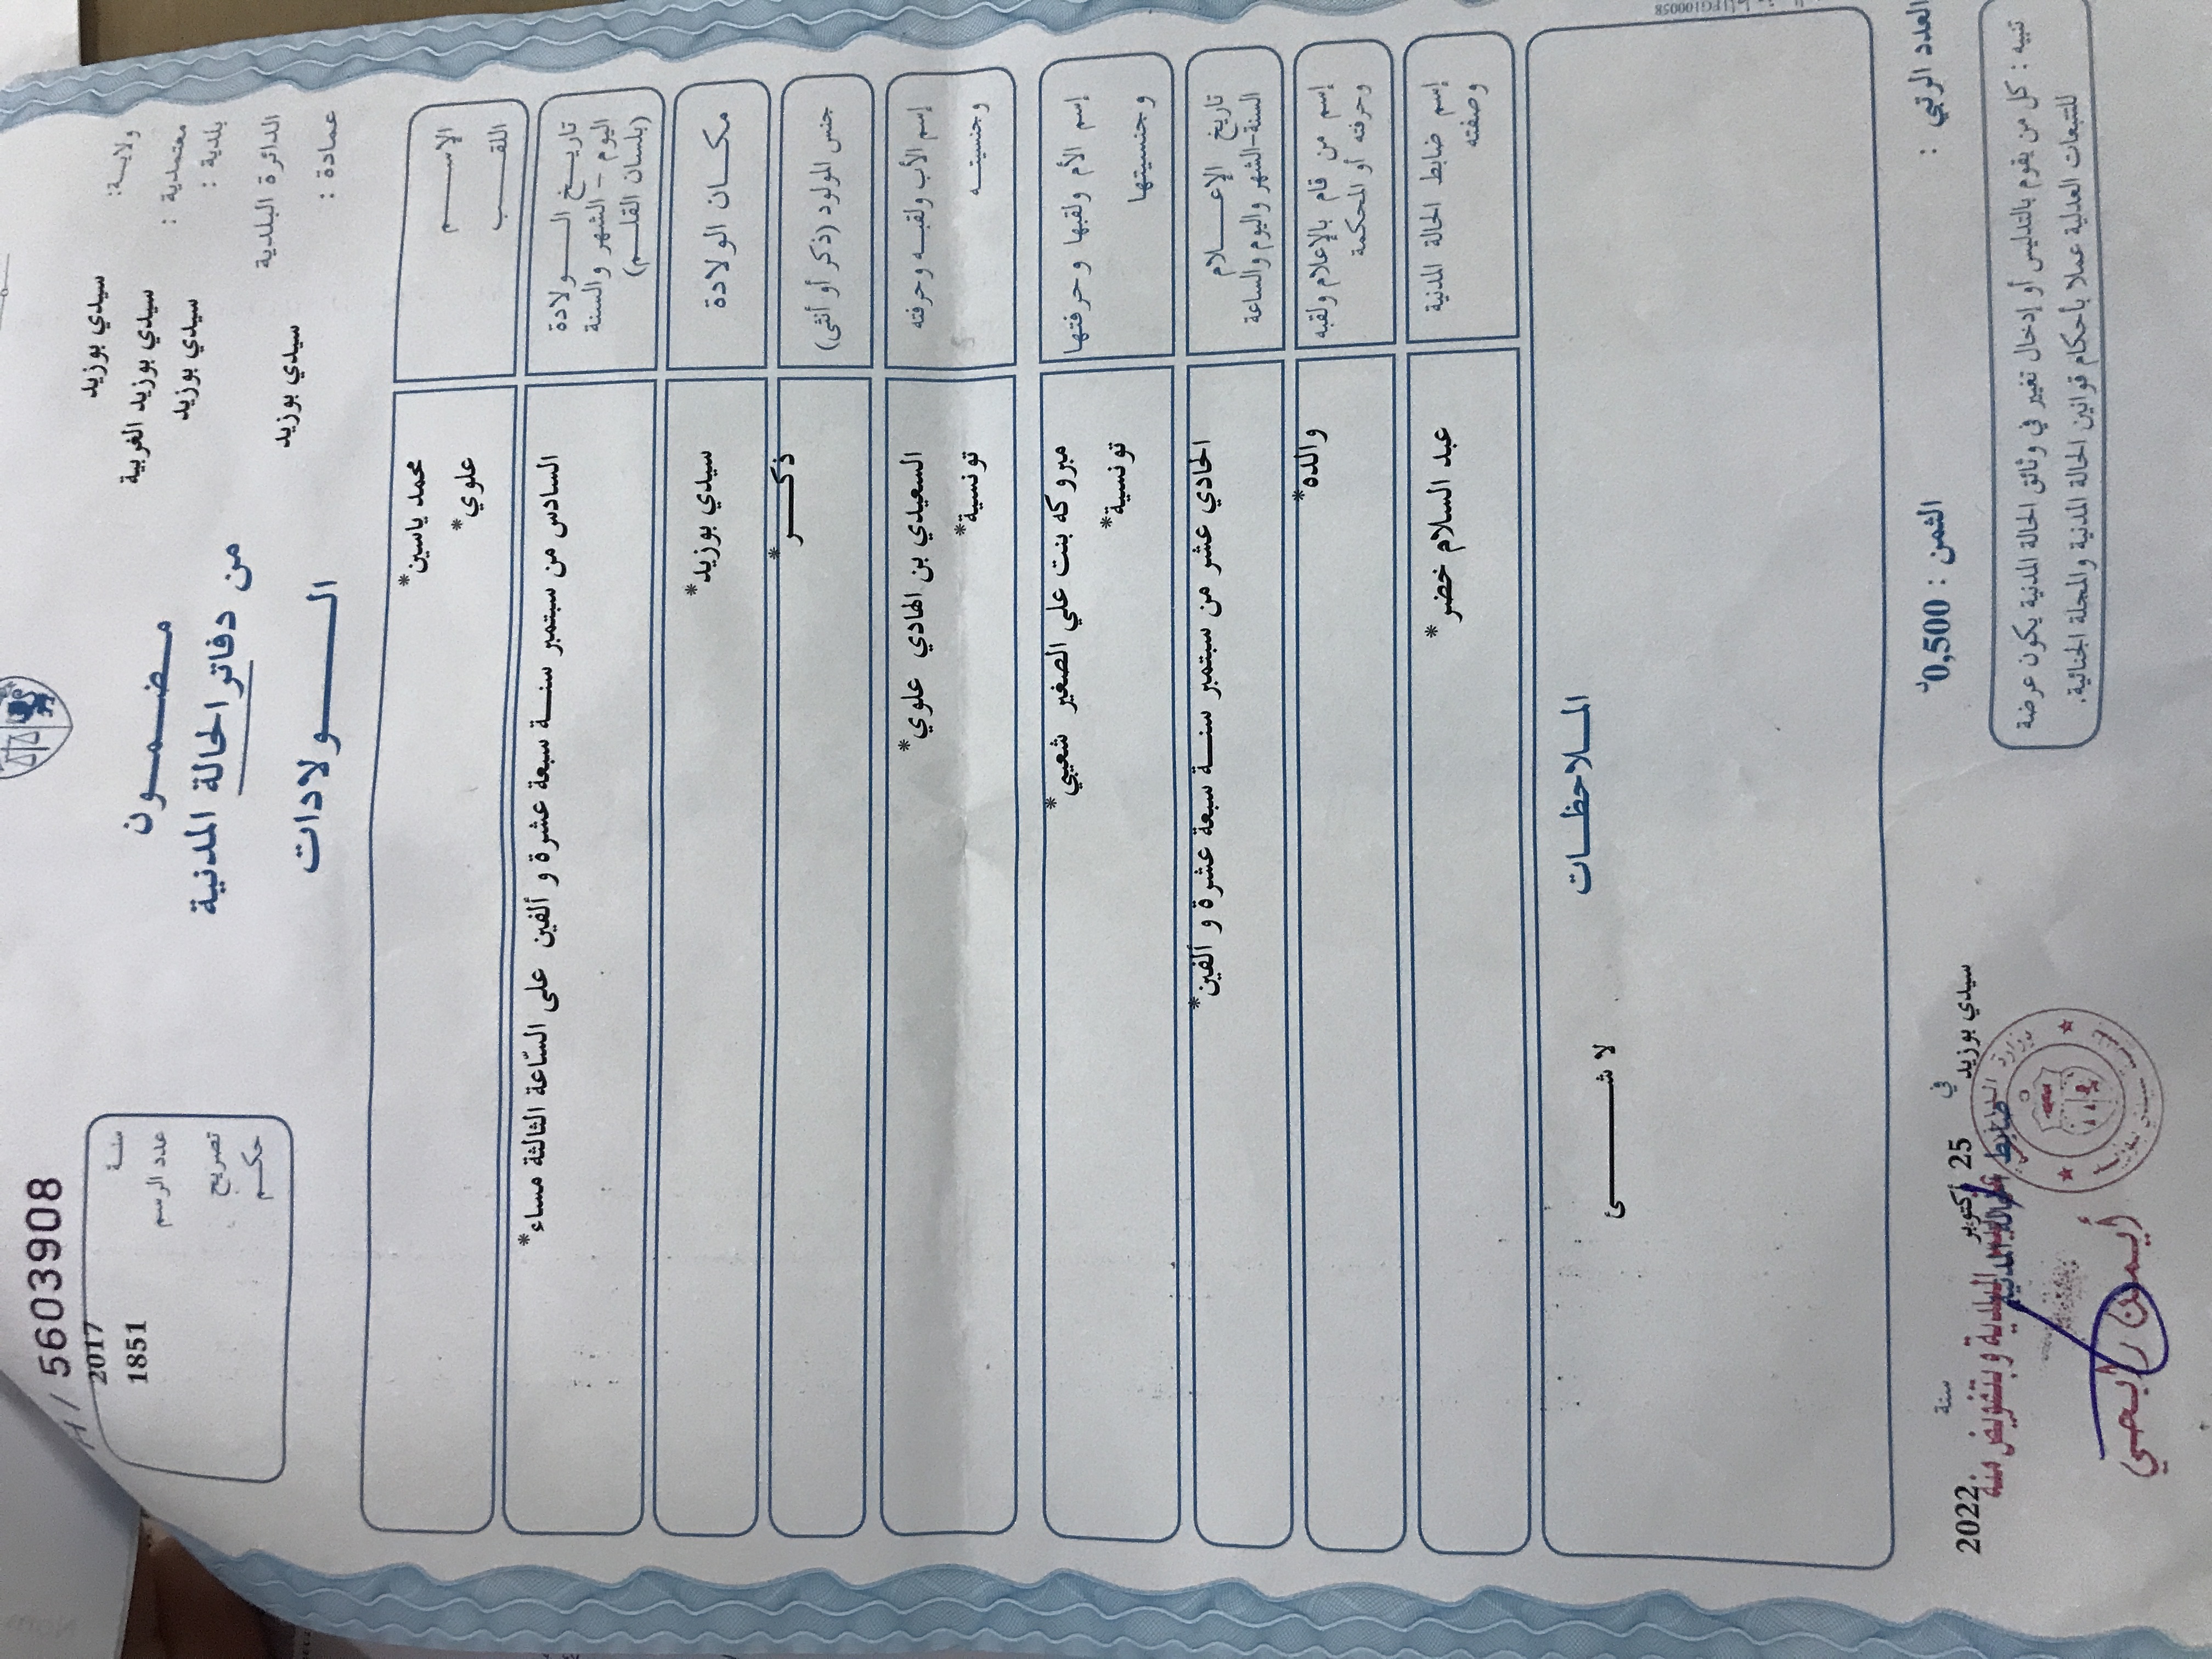 56039908 / A
ولاية: سيدي بوزيد
معتمدية : سيدي بوزيد الغربية
بلدية : سيدي بوزيد
الدائرة البلدية
عمادة : سيدي بوزيد
مضمون
من دفاتر الحالة المدنية
الولادات
سنة 2017
عدد الرسم 1851
تصريح
حكم
الإسم محمد ياسين*
اللقب علوي*
تاريخ الولادة
اليوم - الشهر والسنة
(بلسان القلم)
السادس من سبتمبر سنة سبعة عشرة و ألفين على السّاعة الثالثة مساء*
مكان الولادة سيدي بوزيد*
جنس المولود (ذكر أو أنثى) ذكر*
إسم الأب ولقبه وحرفته السعيدي بن الهادي علوي*
وجنسيته تونسية*
إسم الأم ولقبها وحرفتها مبروكه بنت علي الصغير شعيبي*
وجنسيتها تونسية*
تاريخ الإعلام
السنة-الشهر واليوم والساعة
الحادي عشر من سبتمبر سنة سبعة عشرة و ألفين*
إسم من قام بالإعلام ولقبه
وحرفته أو المحكمة
والده*
إسم ضابط الحالة المدنية
وصفته
عبد السلام خضر*
الملاحظات
لا شئ
العدد الرتبي :
الثمن : 0,500د
سيدي بوزيد في 25 أكتوبر سنة 2022
ضابط الحالة المدنية
أيمن رابحي
تنبيه : كل من يقوم بالتدليس أو إدخال تغيير في وثائق الحالة المدنية يكون عرضة
للتتبعات العدلية عملا بأحكام قوانين الحالة المدنية والمجلة الجنائية.